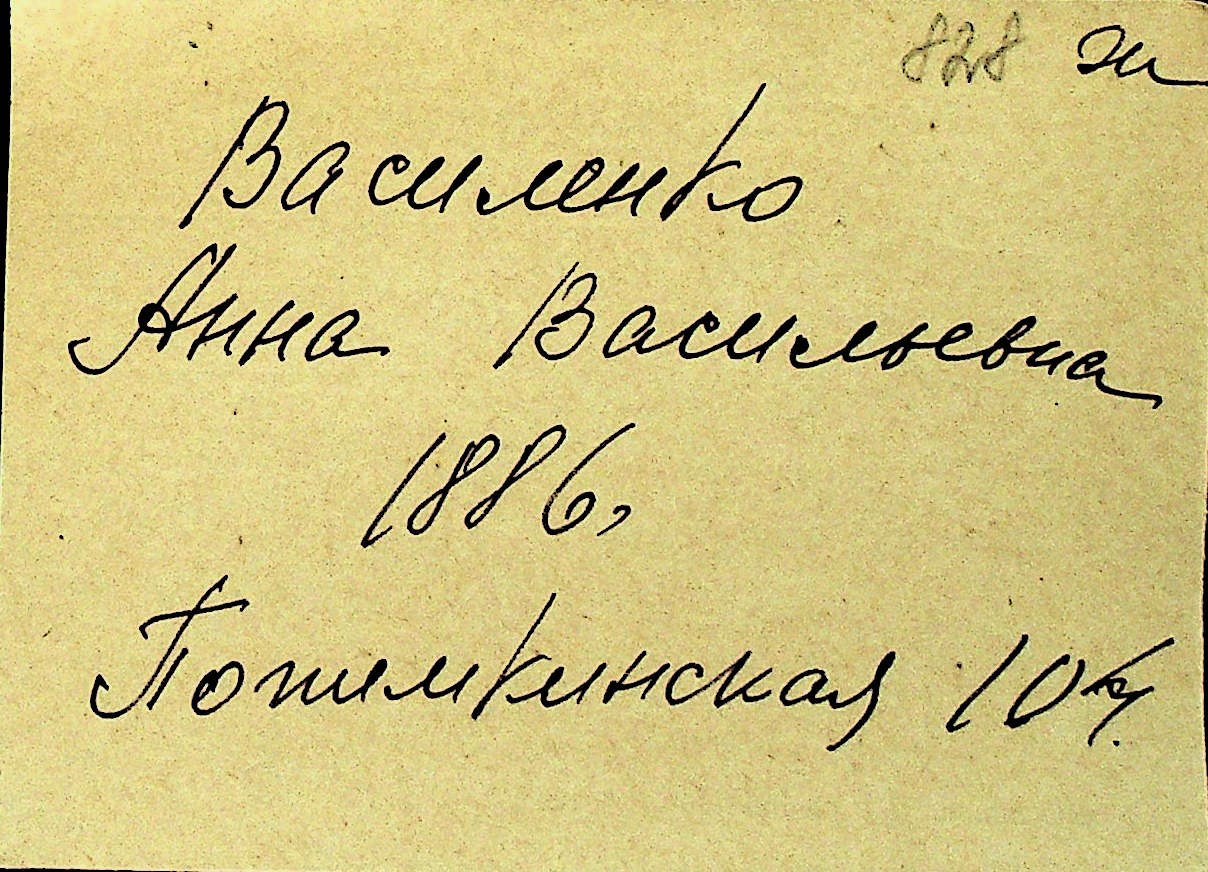 828 ж
Василенко
Анна Васильевна
1886,
Потемкинская 10